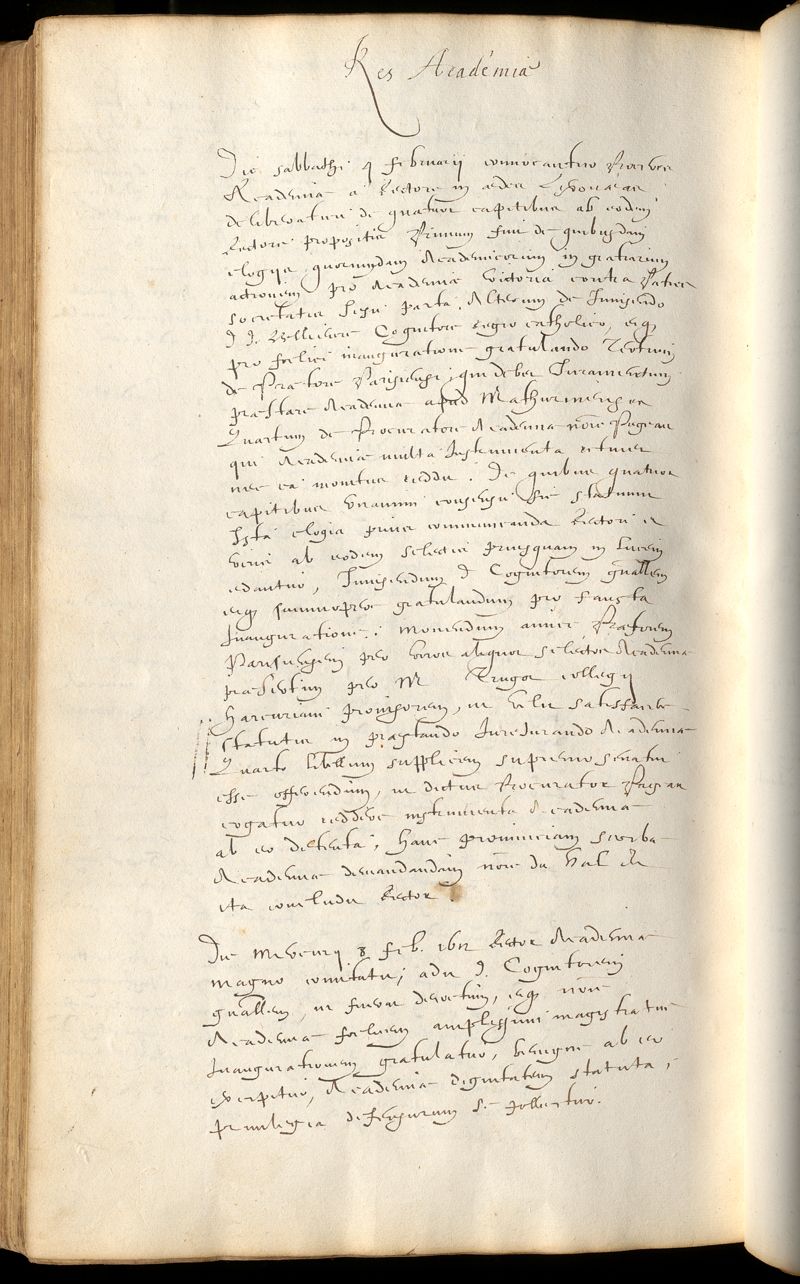 Res Academiæ
Die sabbathi 4 februarij convocantur Proceres
Academiæ a Rectore in ædes Lexovæas
deliberaturi de quatuor capitibus ab eodem
Rectore propositis Primum fuit de quibusdam
elogijs quorumdam Academicorum in gratiarum
actionem pro Academiæ victoria contra Patres
societatis Jesu parta. Alterum de Invisendo
D. D. Bellievre Cognitore regio catholico, eiq
pro felici inauguratione gratulando Tertium
de Prætore Parisiensi, qui debet Juramentum
præstare Academiæ apud Mathurinenses
Quartum de Procuratore Academiæ noie Pageau
qui Academiæ multa Instrumenta retinet
nec ea monitus reddit. De quibus quatuor
capitibus unanimi consensu sic statutum
Ista elogia prius communicanda Rectori et
viris ab eodem selectis priusquam in lucem
edantur, Invisendum D. Cognitorem gnallem
eiq summopere gratulandum pro fausta
Inauguratione; monendum amice Prætorem
Parisiensem per viros aliquot selectos Academiæ
præsertim per M Turgot collegij
Harcuriani provisorem, ut velit satisfacere
statutis in præstando Jurejurando Academiæ
Quarto libellum supplicem supremo senatui
esse offerendum, ut dictus Procurator Pageau
cogatur reddere instrumenta Academiæ
ab eo detenta; hanc provinciam scribæ
Academiæ demandandam noie du Val et
ita conclusit Rector.
Die Mercurij 8 feb. 1612 Rector Academiæ
magno comitatu, adit D. Cognitorem
gnallem, ut fuerat decretum, eiq noie
Academiæ felicem amplissimi magistratus
Inaugurationem gratulatur, benigne ab eo
excipitur, Academiæ dignitatem statuta,
privilegia defensurum se pollicetur.